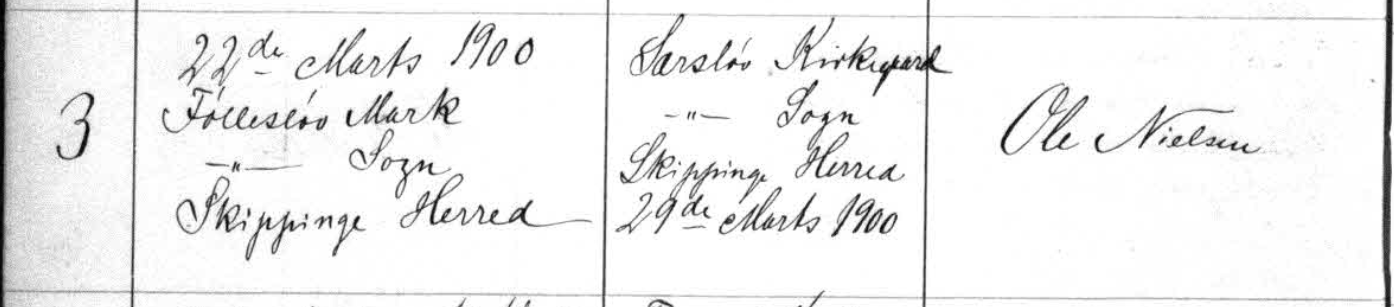 3
22de Marts 1900
Følleslöv Mark
-"- Sogn
Skippinge Herred
Særslöv Kirkegaard
-"- Sogn
Skippinge Herred
29de Marts 1900
Ole Nielsen